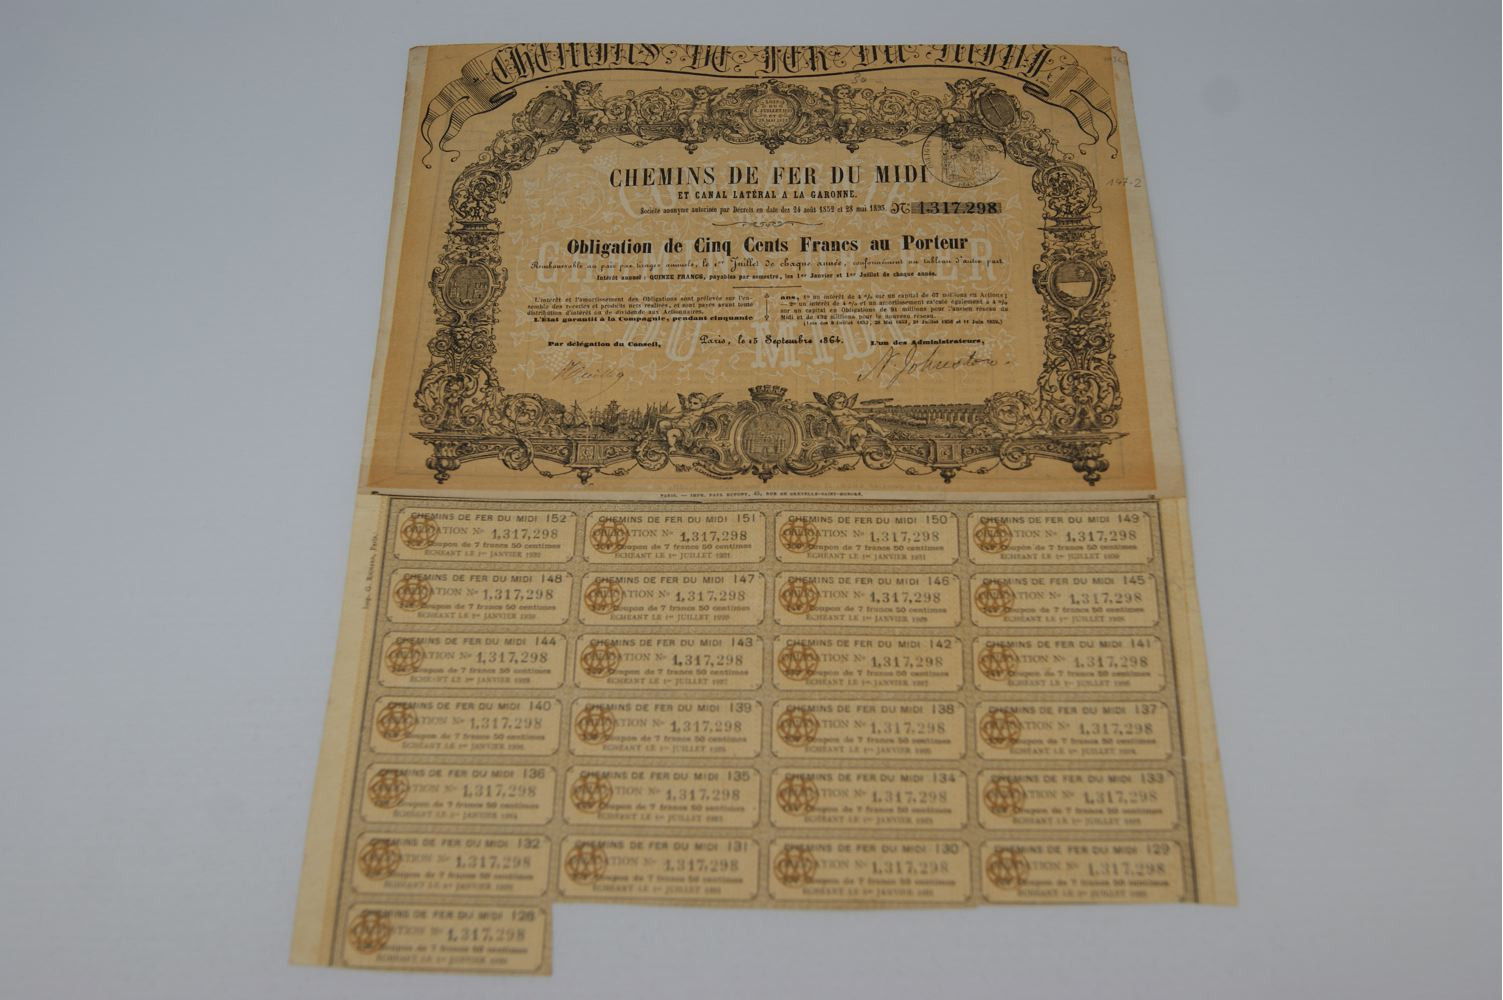 CHEMINS DE FER DU MIDI
CHEMINS DE FER DU MIDI
ET CANAL LATÉRAL A LA GARONNE.
Société anonyme autorisée par Décrets en date des 24 août 1852 et 28 mai 1853. No 1.317.298
Obligation de Cinq Cents Francs au Porteur
Remboursable au pair par tirages annuels, le 1er Juillet de chaque année, conformément au tableau d'autre part.
Intérêt annuel: QUINZE FRANCS, payables par semestre, les 1er Janvier et 1er Juillet de chaque année.
L'intérêt et l'amortissement des Obligations sont prélevés sur l'en-
semble des recettes et produits nets réalisés, et sont payés avant toute
distribution d'intérêt ou de dividende aux Actionnaires.
L'Etat garantit à la Compagnie, pendant cinquante
ans, 1° un intérêt de 4 % sur un capital de 67 millions en Actions;
— 2° un intérêt de 4 % et un amortissement calculé également à 4 %
sur un capital en Obligations de 91 millions pour l'ancien réseau du
Midi et de millions pour le nouveau réseau.
Par délégation du Conseil,
Paris, le 15 Septembre 1864.
L'un des Administrateurs,
N. Johnston
197-2
PARIS. — IMP. PAUL DUPONT, 45, RUE DE GRENELLE-SAINT-HONORÉ.
CHEMINS DE FER DU MIDI 152
OBLIGATION No 1,317,298
Coupon de 7 francs 50 centimes
ECHÉANT LE 1er JANVIER
CHEMINS DE FER DU MIDI 151
OBLIGATION No 1,317,298
Coupon de 7 francs 50 centimes
ECHÉANT LE 1er JUILLET 1931
CHEMINS DE FER DU MIDI 150
OBLIGATION No 1,317,298
Coupon de 7 francs 50 centimes
ECHÉANT LE 1er JANVIER 1931
CHEMINS DE FER DU MIDI 149
OBLIGATION No 1,317,298
Coupon de 7 francs 50 centimes
ECHÉANT LE 1er JUILLET
CHEMINS DE FER DU MIDI 148
OBLIGATION No 1,317,298
Coupon de 7 francs 50 centimes
ECHÉANT LE 1er JANVIER
CHEMINS DE FER DU MIDI 147
OBLIGATION No 1,317,298
Coupon de 7 francs 50 centimes
ECHÉANT LE 1er JUILLET
CHEMINS DE FER DU MIDI 146
OBLIGATION No 1,317,298
Coupon de 7 francs 50 centimes
ECHÉANT LE 1er JANVIER
CHEMINS DE FER DU MIDI 145
OBLIGATION No 1,317,298
Coupon de 7 francs 50 centimes
ECHÉANT LE 1er JUILLET
CHEMINS DE FER DU MIDI 144
OBLIGATION No 1,317,298
Coupon de 7 francs 50 centimes
ECHÉANT LE 1er JANVIER
CHEMINS DE FER DU MIDI 143
OBLIGATION No 1,317,298
Coupon de 7 francs 50 centimes
ECHÉANT LE 1er JUILLET
CHEMINS DE FER DU MIDI 142
OBLIGATION No 1,317,298
Coupon de 7 francs 50 centimes
ECHÉANT LE 1er JANVIER
CHEMINS DE FER DU MIDI 141
OBLIGATION No 1,317,298
Coupon de 7 francs 50 centimes
ECHÉANT LE 1er JUILLET
CHEMINS DE FER DU MIDI 140
OBLIGATION No 1,317,298
Coupon de 7 francs 50 centimes
ECHÉANT LE 1er JANVIER
CHEMINS DE FER DU MIDI 139
OBLIGATION No 1,317,298
Coupon de 7 francs 50 centimes
ECHÉANT LE 1er JUILLET
CHEMINS DE FER DU MIDI 138
OBLIGATION No 1,317,298
Coupon de 7 francs 50 centimes
ECHÉANT LE 1er JANVIER
CHEMINS DE FER DU MIDI 137
OBLIGATION No 1,317,298
Coupon de 7 francs 50 centimes
ECHÉANT LE 1er JUILLET
CHEMINS DE FER DU MIDI 136
OBLIGATION No 1,317,298
Coupon de 7 francs 50 centimes
ECHÉANT LE 1er JANVIER
CHEMINS DE FER DU MIDI 135
OBLIGATION No 1,317,298
Coupon de 7 francs 50 centimes
ECHÉANT LE 1er JUILLET
CHEMINS DE FER DU MIDI 134
OBLIGATION No 1,317,298
Coupon de 7 francs 50 centimes
ECHÉANT LE 1er JANVIER
CHEMINS DE FER DU MIDI 133
OBLIGATION No 1,317,298
Coupon de 7 francs 50 centimes
ECHÉANT LE 1er JUILLET
CHEMINS DE FER DU MIDI 132
OBLIGATION No 1,317,298
Coupon de 7 francs 50 centimes
ECHÉANT LE 1er JANVIER
CHEMINS DE FER DU MIDI 131
OBLIGATION No 1,317,298
Coupon de 7 francs 50 centimes
ECHÉANT LE 1er JUILLET
CHEMINS DE FER DU MIDI 130
OBLIGATION No 1,317,298
Coupon de 7 francs 50 centimes
ECHÉANT LE 1er JANVIER
CHEMINS DE FER DU MIDI 129
OBLIGATION No 1,317,298
Coupon de 7 francs 50 centimes
ECHÉANT LE 1er JUILLET
CHEMINS DE FER DU MIDI 128
OBLIGATION No 1,317,298
Coupon de 7 francs 50 centimes
ECHÉANT LE 1er JANVIER